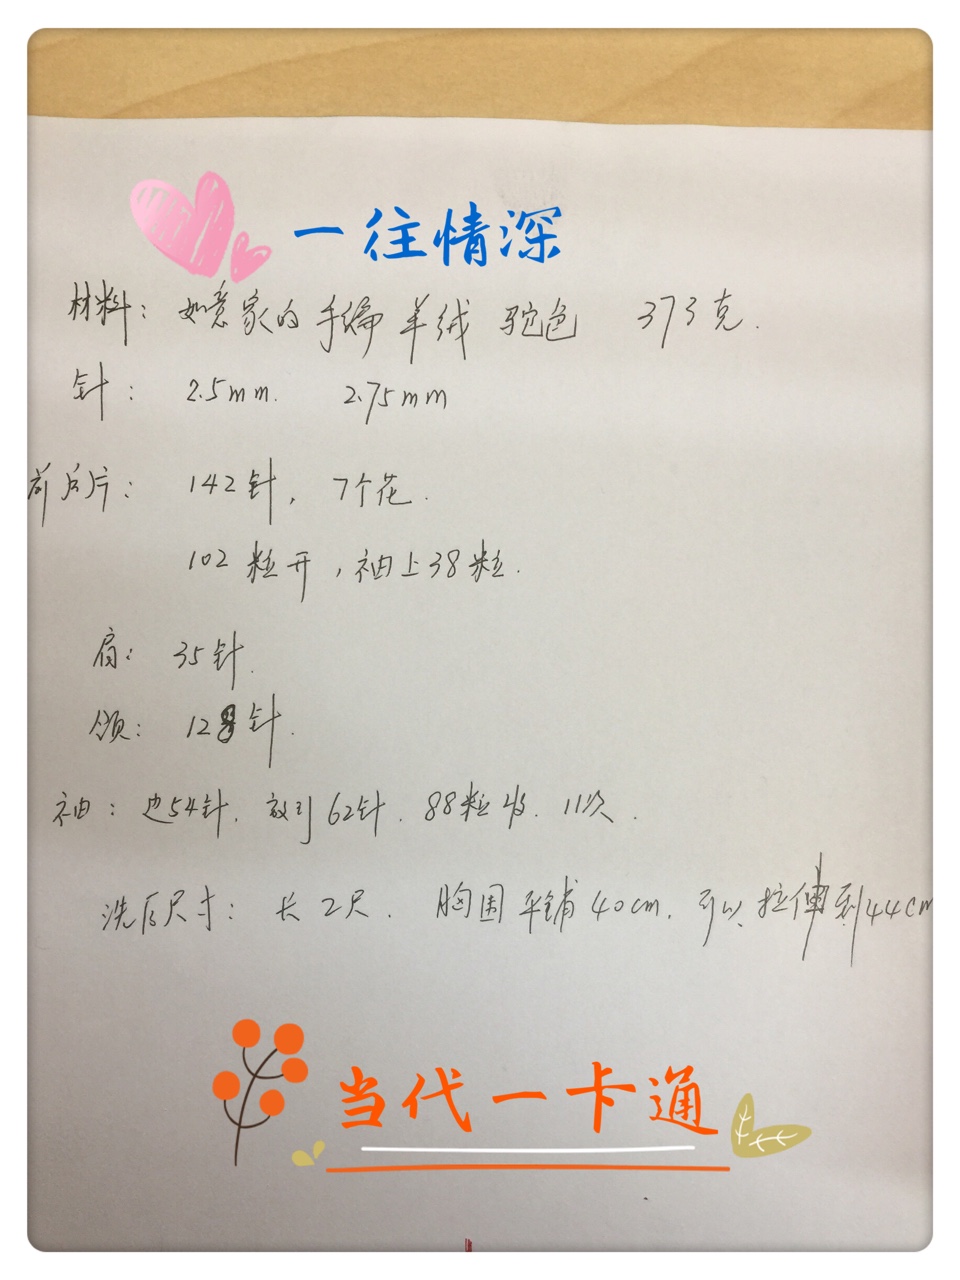 一往情深
材料: 如意家的手编羊绒 驼色 373克.
针: 2.5mm. 2.75mm
前后片: 142针, 7个花.
102粒开, 袖上38粒.
肩: 35针.
领: 128针.
袖: 边54针. 放到62针. 88粒收. 11次.
洗后尺寸: 长2尺. 胸围平铺40cm. 可以拉伸到44cm
当代一卡通